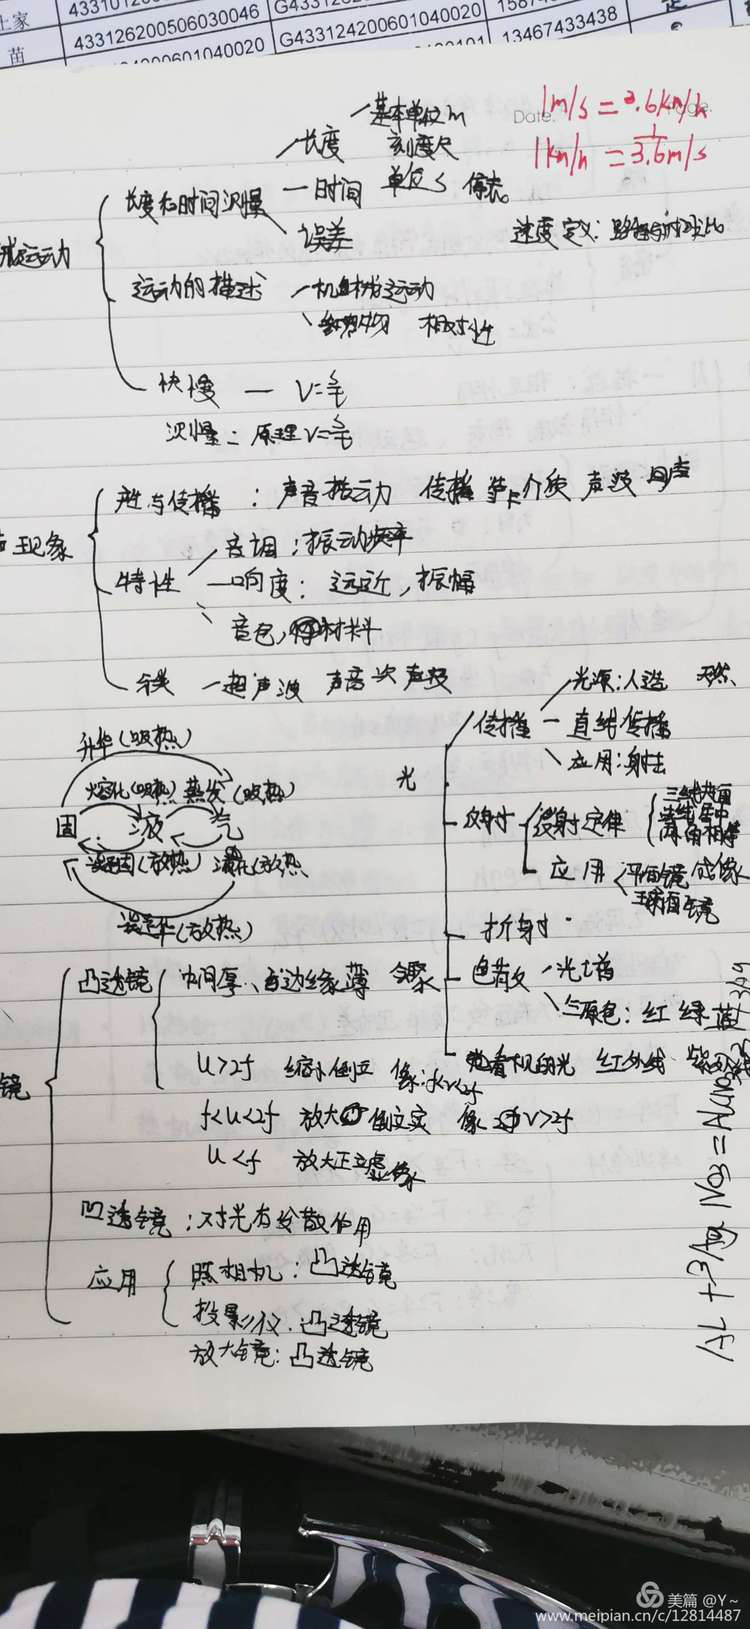 土家
苗
433126200506030046
G4331242006010400
1333101
13467433438
Date.
Page.
1m/s = 3.6km/h
1km/h = 1/3.6 m/s
速度定义：路程与时间之比
械运动
长度和时间测量
长度
基本单位 m
刻度尺
时间 单位 s 停表
误差
运动的描述
机械运动
参照物 相对性
快慢 — V=s/t
测量：原理 V=s/t
声现象
产生与传播：声音振动 传播 介质 声波 回声
特性
音调：振动快率
响度：远近，振幅
音色，材料
分类 超声波 声音 次声波
升华(吸热)
熔化(吸热) 蒸发(吸热)
固 液 气
凝固(放热) 液化(放热)
凝华(放热)
光
传播
光源：人造 天然
直线传播
应用：射
反射
反射定律
三线共面
法线居中
两角相等
应用
平面镜 成像
球面镜
折射
色散
光谱
三原色：红 绿 蓝
看不见的光 红外线 紫外线
镜
凸透镜
中间厚、边缘薄 会聚
U>2f 缩小倒立 像：f<v<2f
f<U<2f 放大 倒立实像 V>2f
U<f 放大正立虚像
凹透镜：对光有发散作用
应用
照相机：凸透镜
投影仪：凸透镜
放大镜：凸透镜
AL+3AgNO3=Al(NO3)3+3Ag
美篇 @Y~
www.meipian.cn/c/12814487